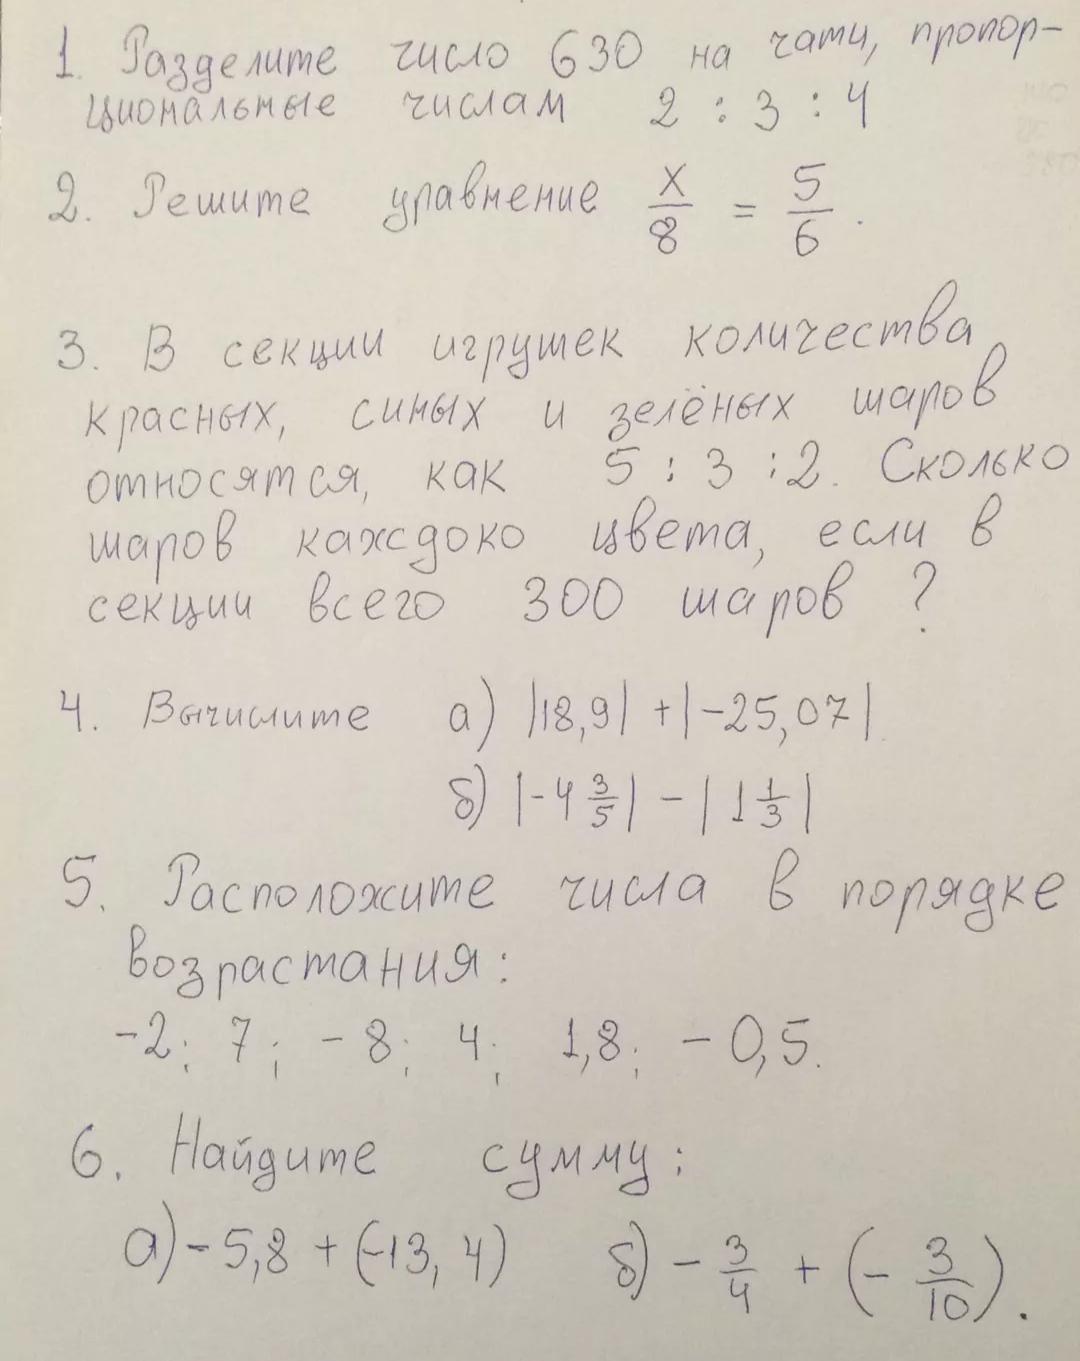 1. Разделите число 630 на чати, пропор-
циональные числам 2 : 3 : 4
2. Решите уравнение x/8 = 5/6.
3. В секции игрушек количества
красных, синых и зелёных шаров
относятся, как 5 : 3 : 2. Сколько
шаров каждоко цвета, если в
секции всего 300 шаров ?
4. Вычислите а) |18,9| + |-25,07|
б) |-4 3/5| - |1 1/3|
5. Расположите числа в порядке
возрастания:
-2; 7; -8; 4; 1,8; -0,5.
6. Найдите сумму:
а) -5,8 + (-13,4) б) -3/4 + (-3/10).